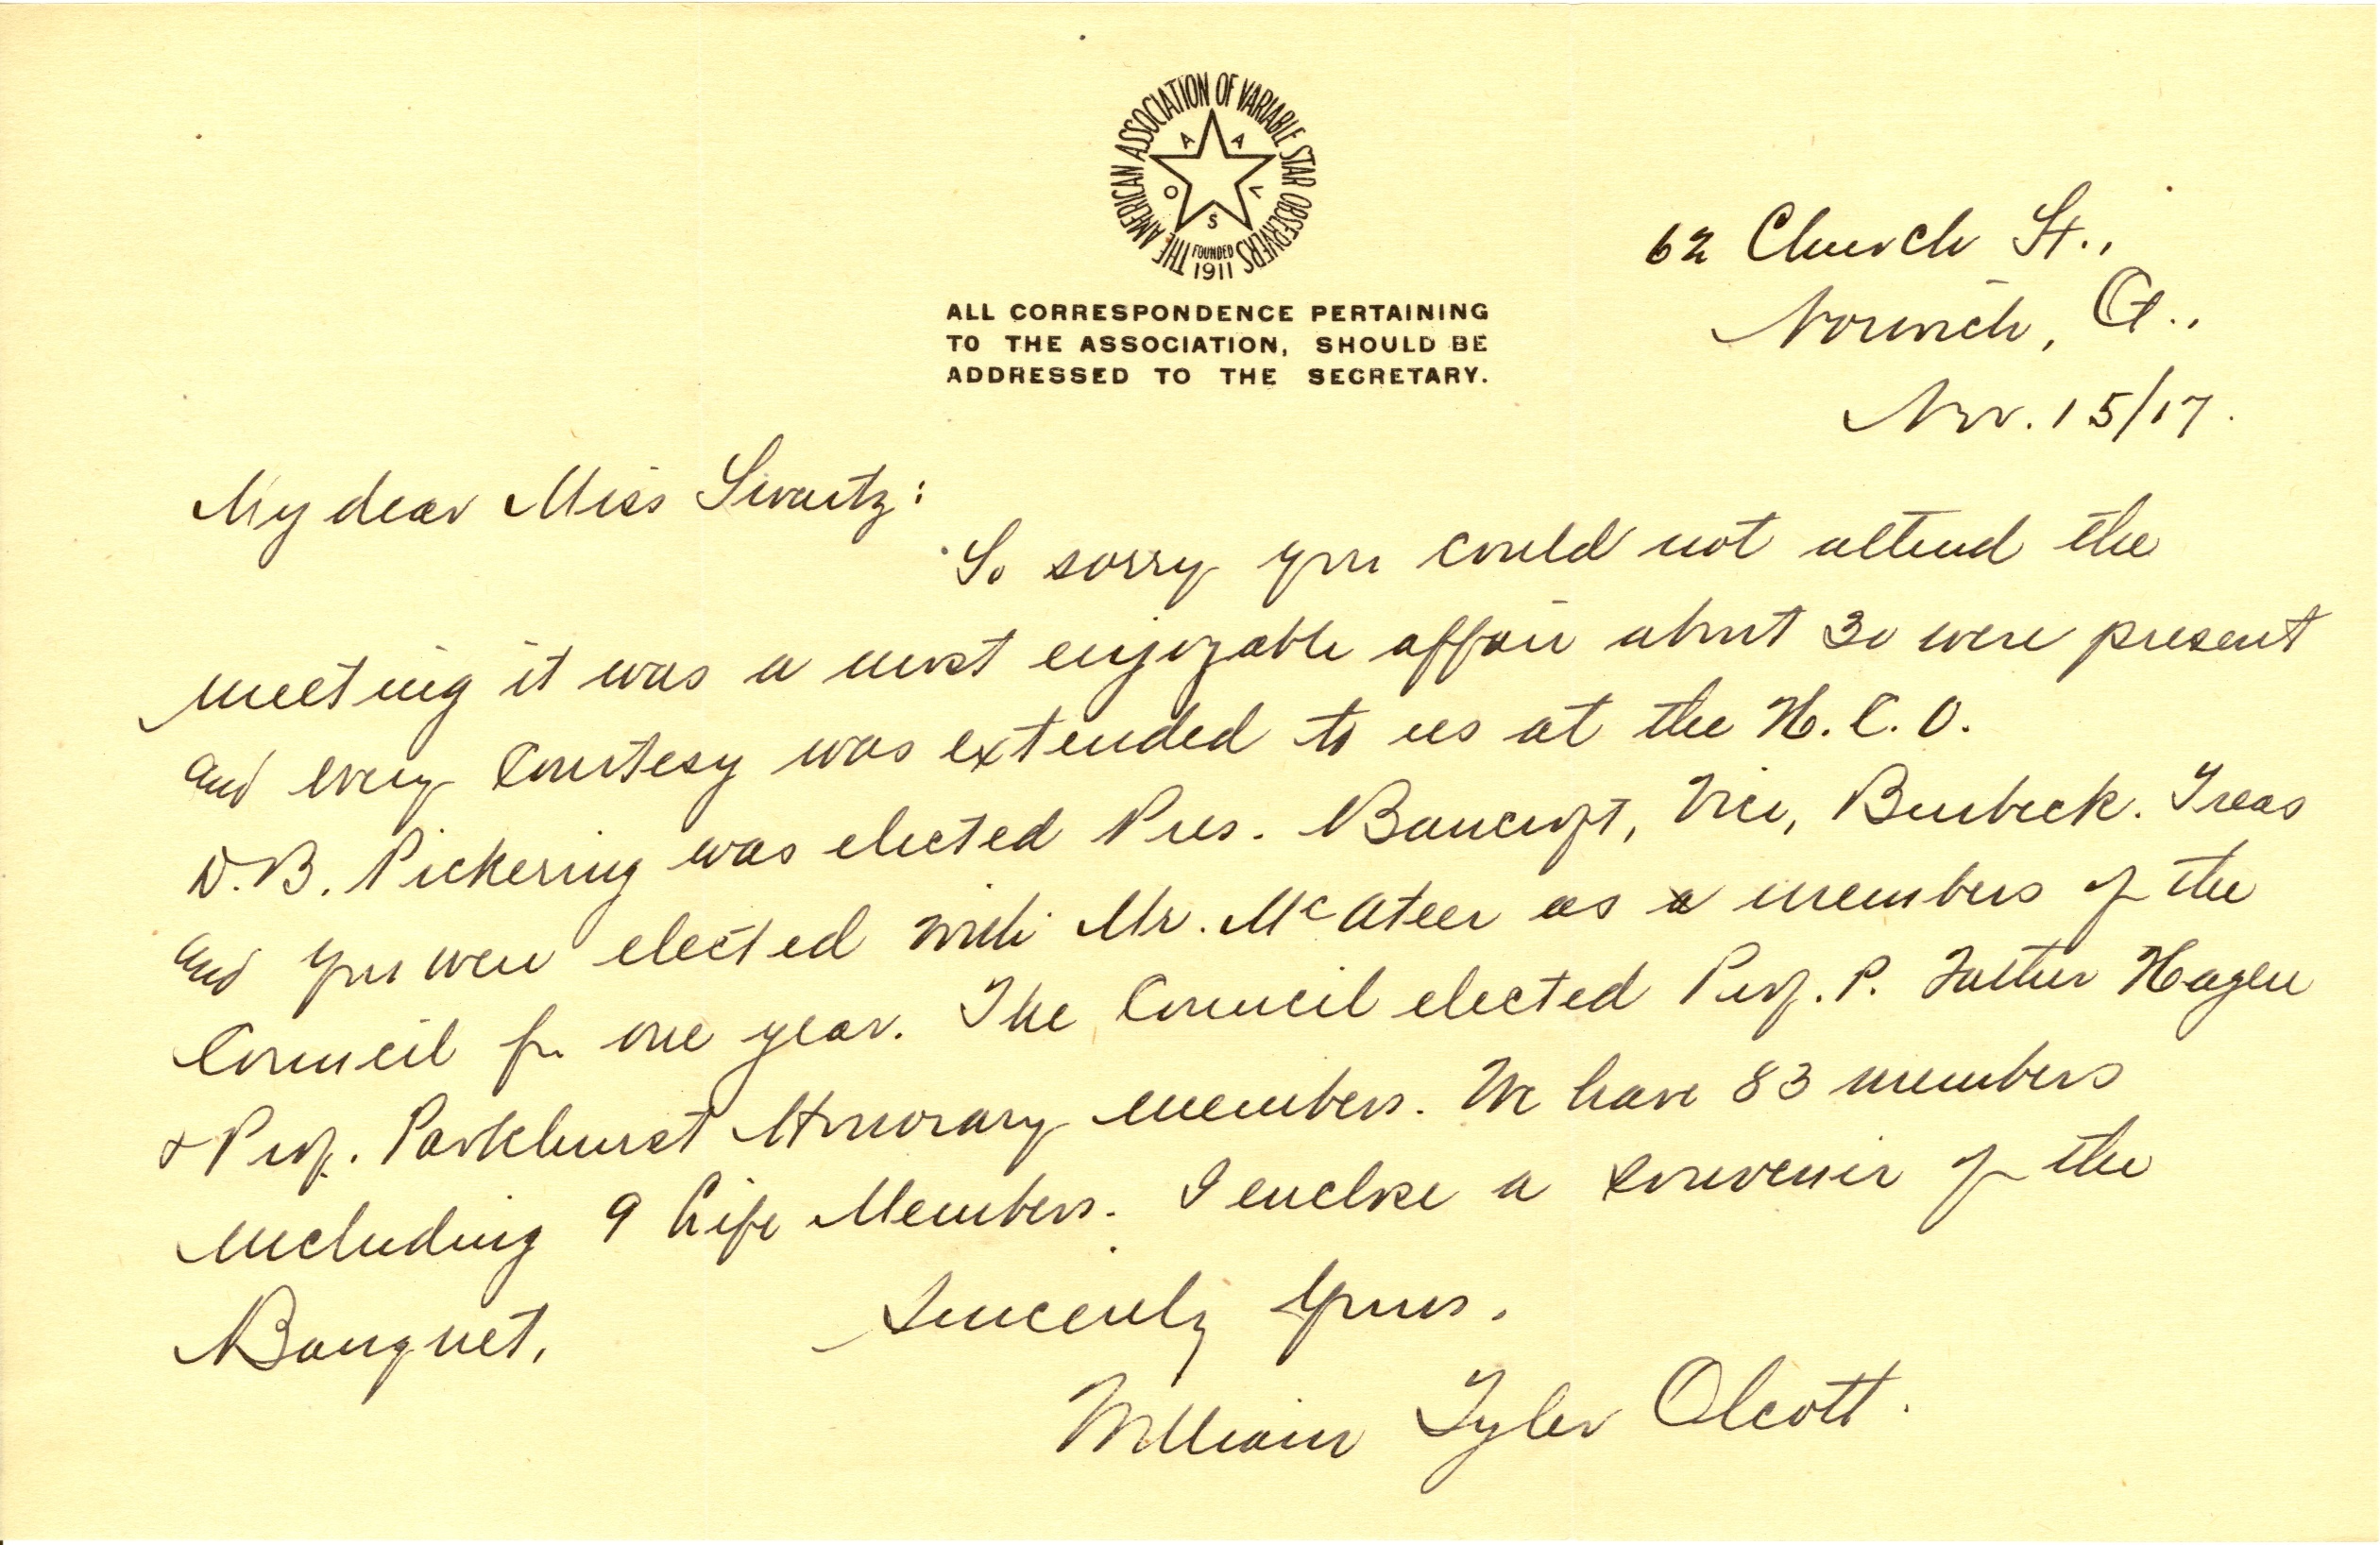 THE AMERICAN ASSOCIATION OF VARIABLE STAR OBSERVERS
A A V S O
FOUNDED
1911
ALL CORRESPONDENCE PERTAINING
TO THE ASSOCIATION, SHOULD BE
ADDRESSED TO THE SECRETARY.
62 Church St.,
Norwich, Ct.,
Nov. 15/17.
My dear Miss Swartz:
So sorry you could not attend the
meeting it was a most enjoyable affair about 30 were present
and every courtesy was extended to us at the H.C.O.
D.B. Pickering was elected Pres. Bancroft, Vice, Burbeck. Treas
and you were elected with Mr. McAteer as a members of the
Council for one year. The Council elected Prof. P. Father Hagen
& Prof. Parkhurst Honorary members. We have 83 members
including 9 Life Members. I enclose a souvenir of the
Banquet.
Sincerely Yours.
William Tyler Olcott.